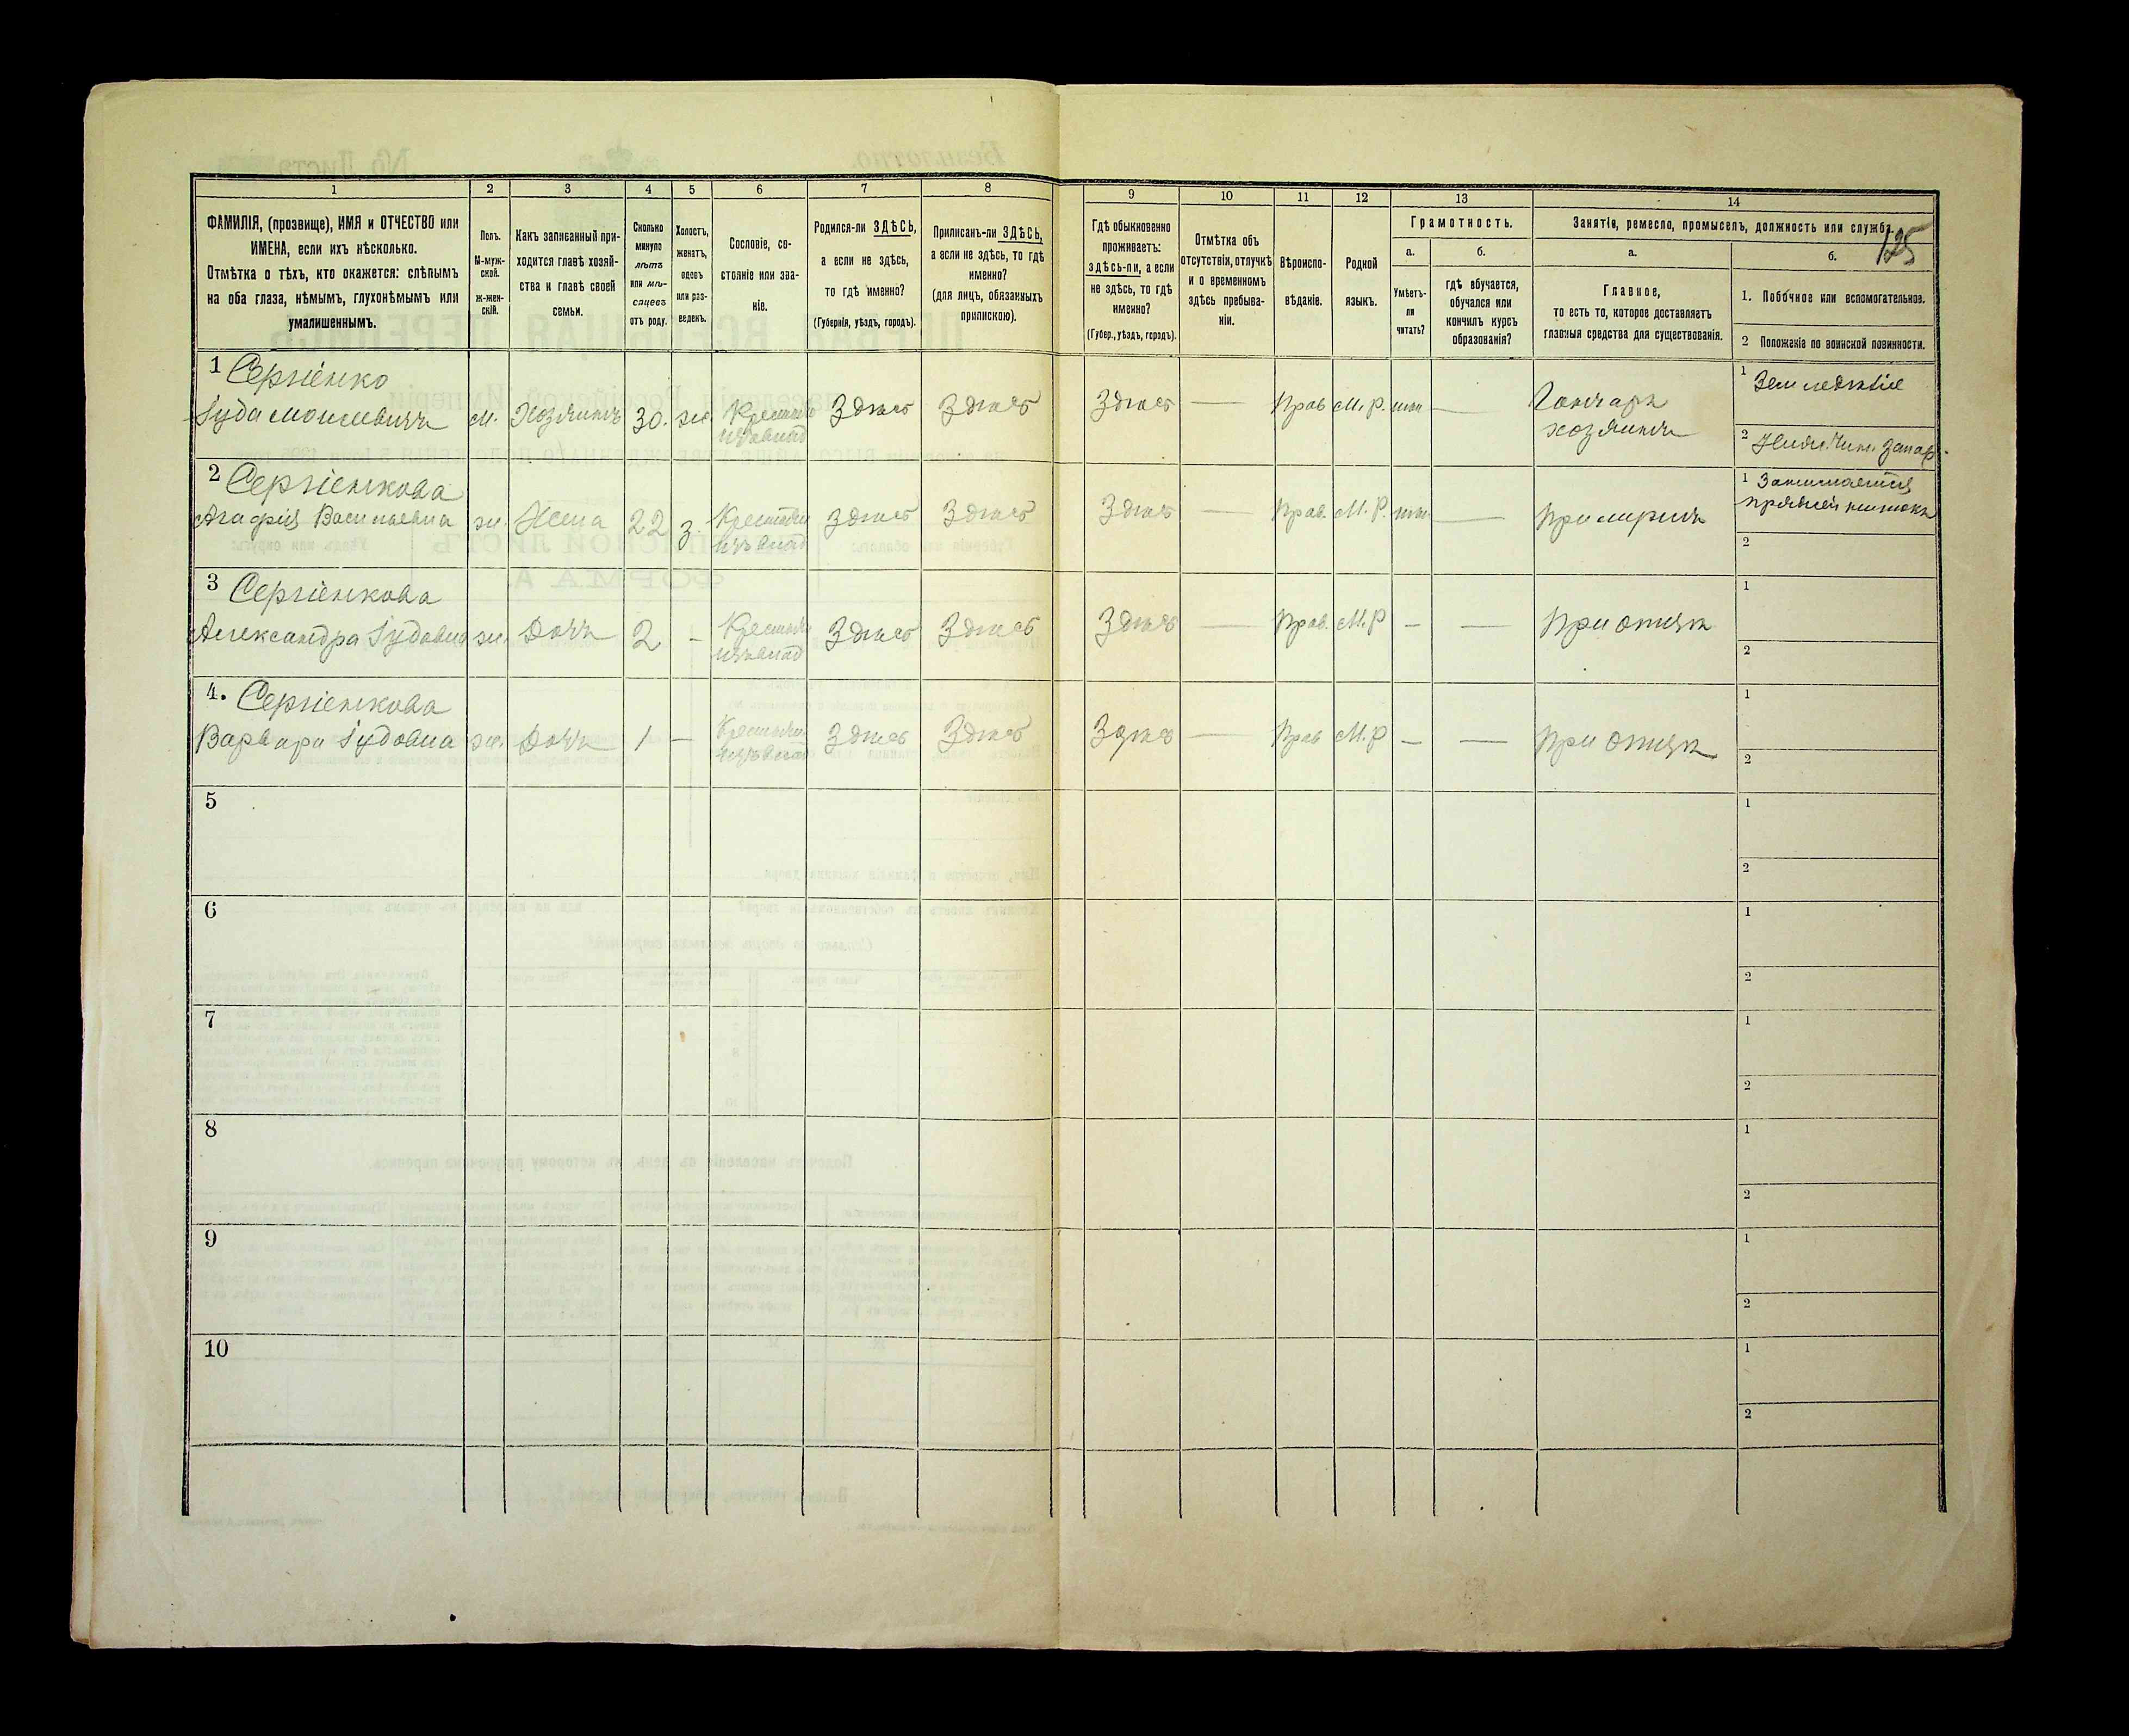 125
1 2 3 4 5 6 7 8 9 10 11 12 13 14
ФАМИЛІЯ, (прозвище), ИМЯ и ОТЧЕСТВО или
ИМЕНА, если ихъ нѣсколько.
Отмѣтка о тѣхъ, кто окажется: слѣпымъ
на оба глаза, нѣмымъ, глухонѣмымъ или
умалишеннымъ.
Полъ.
М-муж-
ской.
ж-жен-
скій.
Какъ записанный при-
ходится главѣ хозяй-
ства и главѣ своей
семьи.
Сколько
минуло
лѣтъ
или мѣ-
сяцевъ
отъ роду.
Холостъ,
женатъ,
вдовъ
или раз-
веденъ.
Сословіе, со-
стояніе или зва-
ніе.
Родился-ли ЗДѢСЬ,
а если не здѣсь,
то гдѣ именно?
(Губернія, уѣздъ, городъ).
Приписанъ-ли ЗДѢСЬ,
а если не здѣсь, то гдѣ
именно?
(для лицъ, обязанныхъ
припискою).
Гдѣ обыкновенно
проживаетъ:
здѣсь-ли, а если
не здѣсь, то гдѣ
именно?
(Губер., уѣздъ, городъ).
Отмѣтка объ
отсутствіи, отлучкѣ
и о временномъ
здѣсь пребыва-
ніи.
Вѣроиспо-
вѣданіе.
Родной
языкъ.
Грамотность.
а.
Умѣетъ-
ли
читать?
б.
гдѣ обучается,
обучался или
кончилъ курсъ
образованія?
Занятіе, ремесло, промыселъ, должность или служба.
а.
Главное,
то есть то, которое доставляетъ
главныя средства для существованія.
б.
1. Побочное или вспомогательное.
2 Положеніе по воинской повинности.
1 Сергіенко
Іуда Моисеевичъ м. Хозяинъ 30. ж. Крестьян Здѣсь Здѣсь Здѣсь — Прав М.Р. — Гончаръ
хозяинъ
1 Земледѣліе
2 Нижн. Чин. Запас.
2 Сергіенкова
Агафія Васильевна ж. Жена 22 З. Крестьян Здѣсь Здѣсь Здѣсь — Прав. М.Р. — При мужѣ
1 Занимается
пряжей нитокъ
2
3 Сергіенкова
Александра Іудовна ж. Дочь 2 - Крестьян Здѣсь Здѣсь Здѣсь — Прав. М.Р - — При отцѣ
1
2
4. Сергіенкова
Варвара Іудовна ж. Дочь 1 — Крестьян. Здѣсь Здѣсь Здѣсь — Прав М.Р — — При отцѣ
1
2
5
1
2
6
1
2
7
1
2
8
1
2
9
1
2
10
1
2